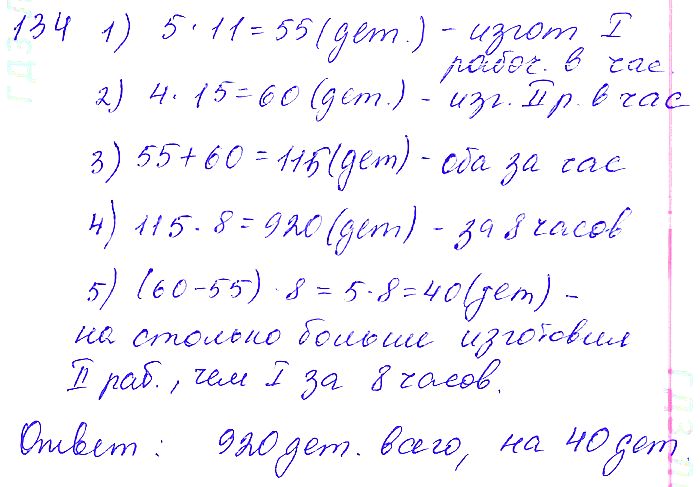 134 1) 5 · 11 = 55 (дет.) - изгот I
рабоч. в час.
2) 4 · 15 = 60 (дет.) - изг. II р. в час
3) 55 + 60 = 115 (дет) - оба за час
4) 115 · 8 = 920 (дет) - за 8 часов
5) (60 - 55) · 8 = 5 · 8 = 40 (дет) -
на столько больше изготовил
II раб., чем I за 8 часов.
Ответ: 920 дет. всего, на 40 дет.